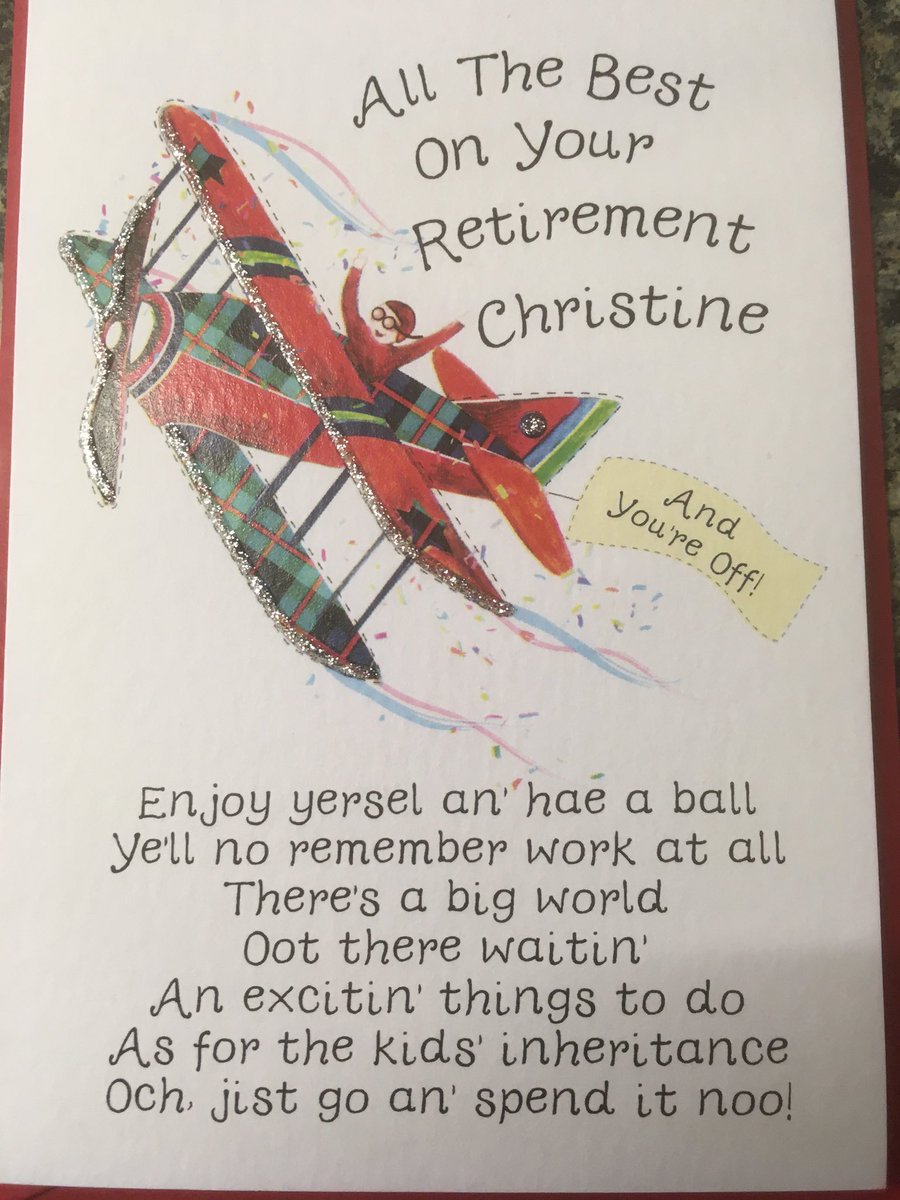 All The Best
On Your
Retirement
Christine
And
You're Off!
Enjoy yersel an' hae a ball
Ye'll no remember work at all
There's a big world
Oot there waitin'
An excitin' things to do
As for the kids' inheritance
Och, jist go an' spend it noo!